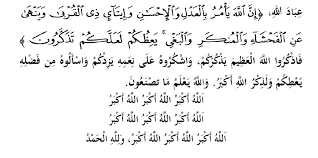 عِبَادَ اللهِ، ﴿إِنَّ اللَّهَ يَأْمُرُ بِالْعَدْلِ وَالْإِحْسَٰنِ وَإِيتَآيِٕ ذِى الْقُرْبَىٰ وَيَنْهَىٰ
عَنِ الْفَحْشَآءِ وَالْمُنكَرِ وَالْبَغْىِ ۚ يَعِظُكُمْ لَعَلَّكُمْ تَذَكَّرُونَ﴾
فَاذْكُرُوا اللهَ الْعَظِيمَ يَذْكُرْكُمْ، وَاشْكُرُوهُ عَلَى نِعَمِهِ يَزِدْكُمْ وَاسْأَلُوهُ مِنْ فَضْلِهِ
يُعْطِكُمْ وَلَذِكْرُ اللهِ أَكْبَرُ. وَاللهُ يَعْلَمُ مَا تَصْنَعُونَ.
اللهُ أَكْبَرُ اللهُ أَكْبَرُ اللهُ أَكْبَرُ
اللهُ أَكْبَرُ اللهُ أَكْبَرُ اللهُ أَكْبَرُ
اللهُ أَكْبَرُ اللهُ أَكْبَرُ اللهُ أَكْبَرُ، وَلِلَّهِ الْحَمْدُ